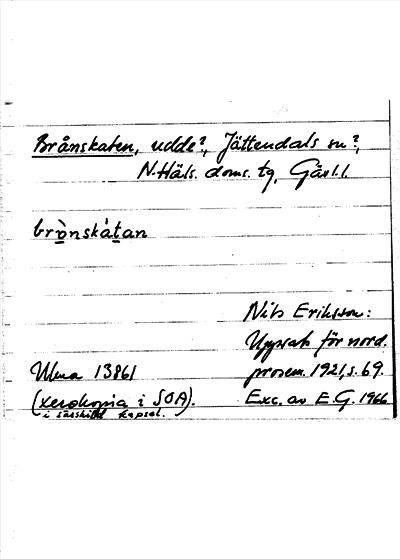 Brånskaten, udde?, Jättendals sn?,
N. Häls. doms. tg, Gävl.l.
brò̱nskàta̱n
Nils Eriksson:
Uppsats för nord.
prosem. 1921, s. 69.
Exc. av E.G. 1966
Ulma 13861
(xerokopia i SOA).
i särskild kapsel.